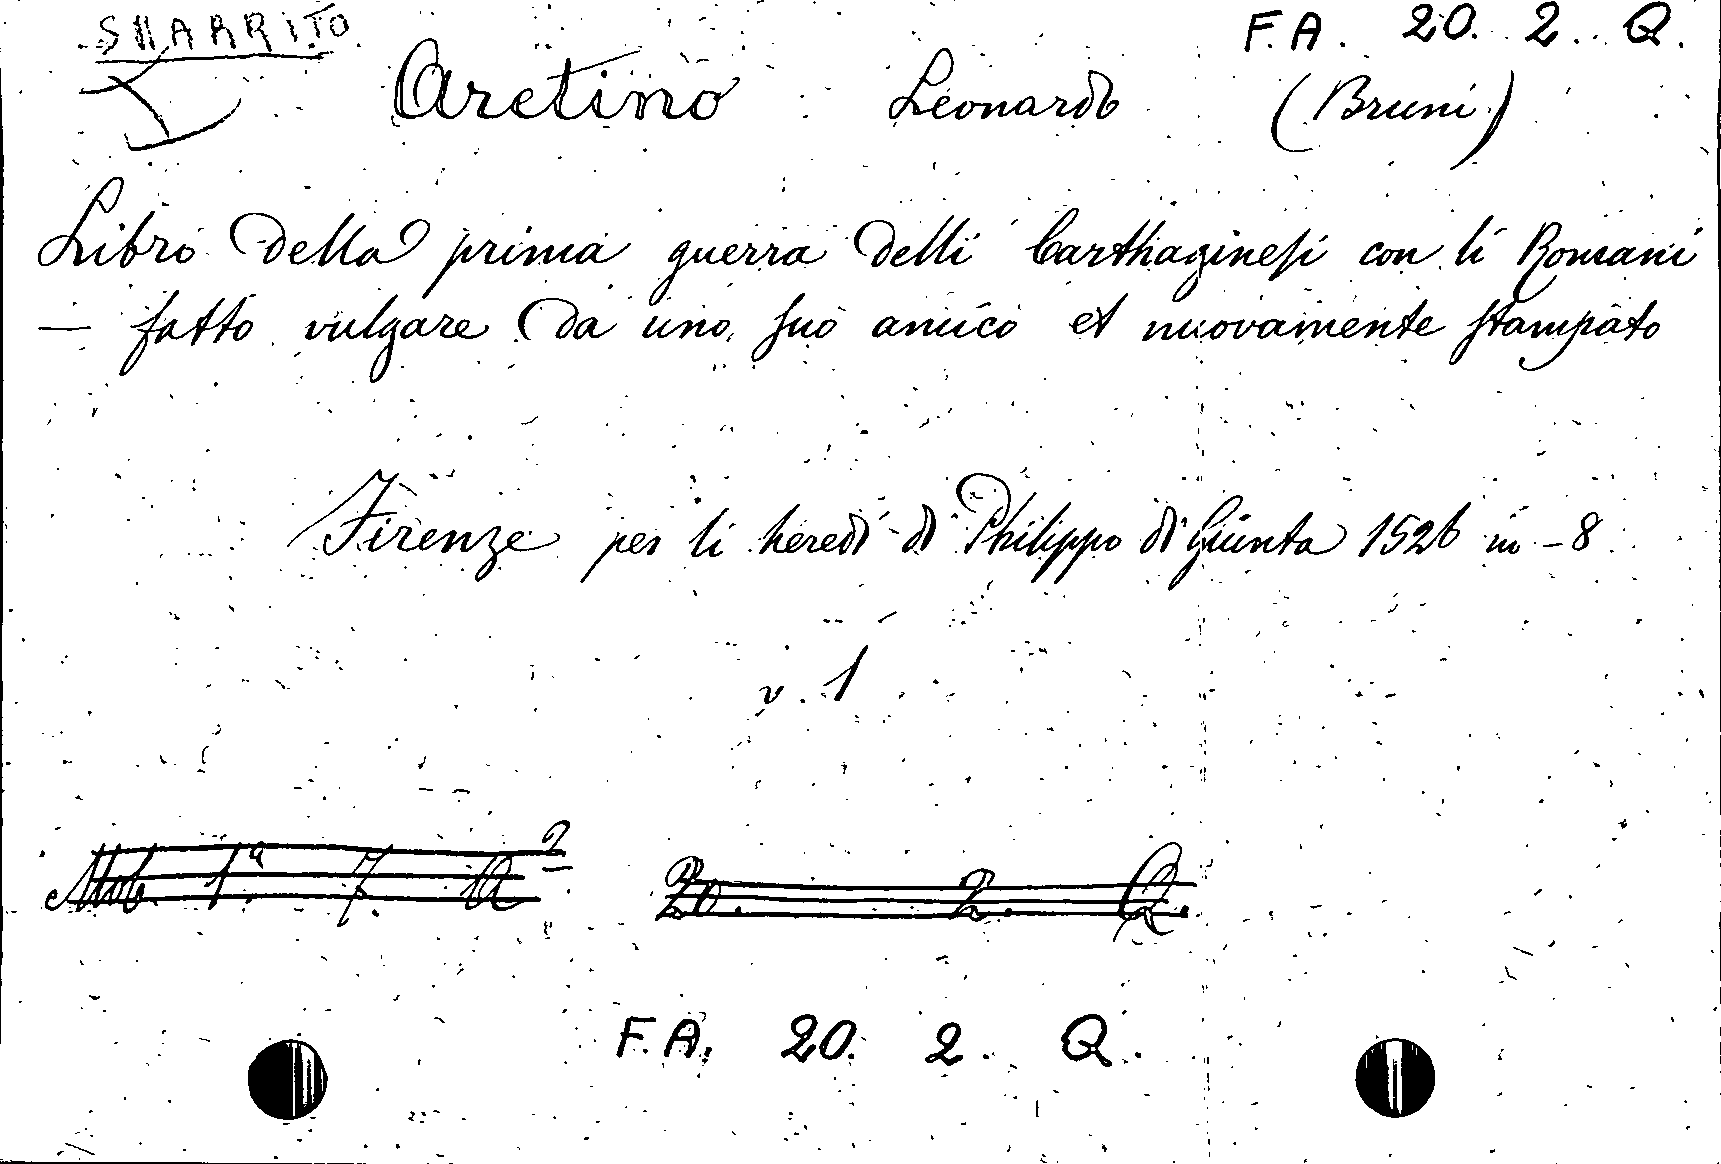 SMARRITO
F.A. 20. 2. Q.
Aretino Leonardo (Bruni)
Libro della prima guerra delli Carthaginesi con li Romani
— fatto vulgare da uno suo amico et nuovamente stampato
Firenze per li heredi di Philippo di Giunta 1526 in-8
v. 1
Mob. 1ª 7. A 2
20. 2. Q.
F.A. 20. 2. Q.